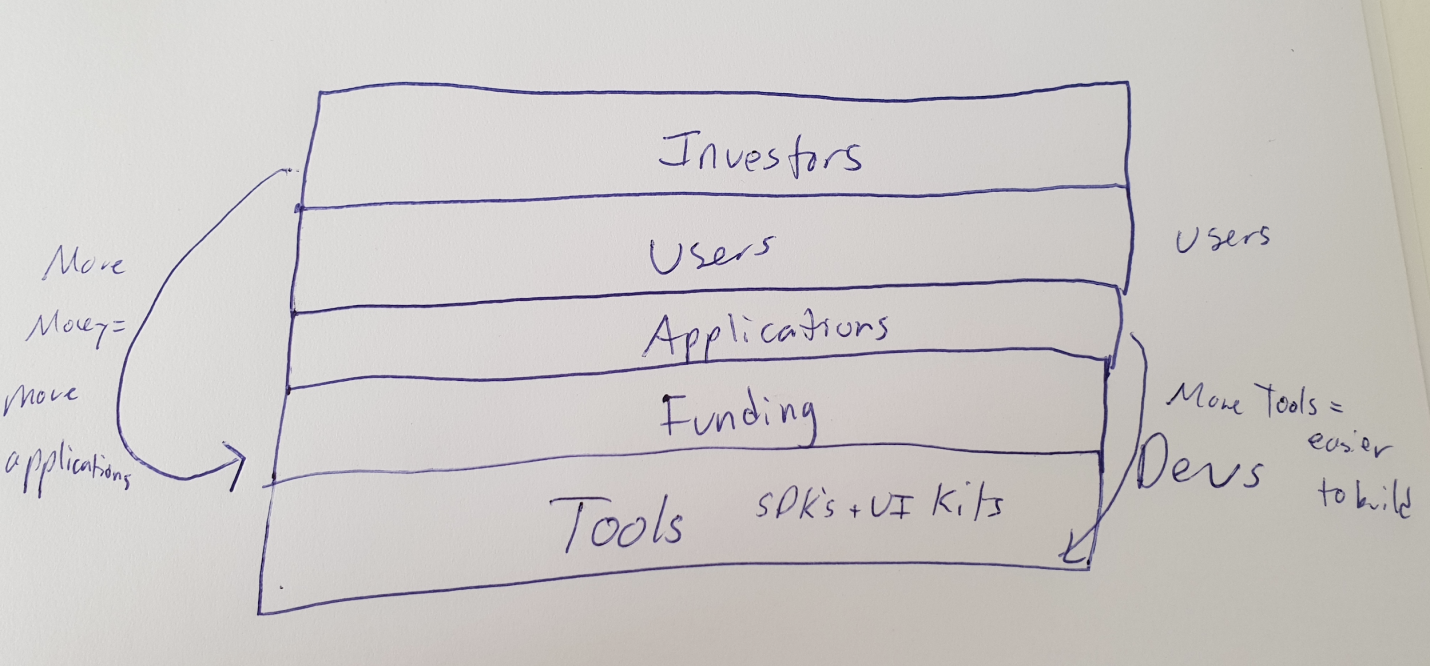 Investors
Users
Applications
Funding
Tools
SDK's + UI Kits
More
Money =
more
applications
Users
More Tools =
easier
to build
Devs